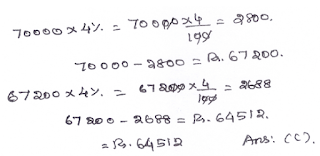 70000 x 4%. = 70000 x 4/100 = 2800.
70000 - 2800 = Rs. 67200.
67200 x 4%. = 67200 x 4/100 = 2688
67200 - 2688 = Rs. 64512.
= Rs. 64512 Ans: (C).